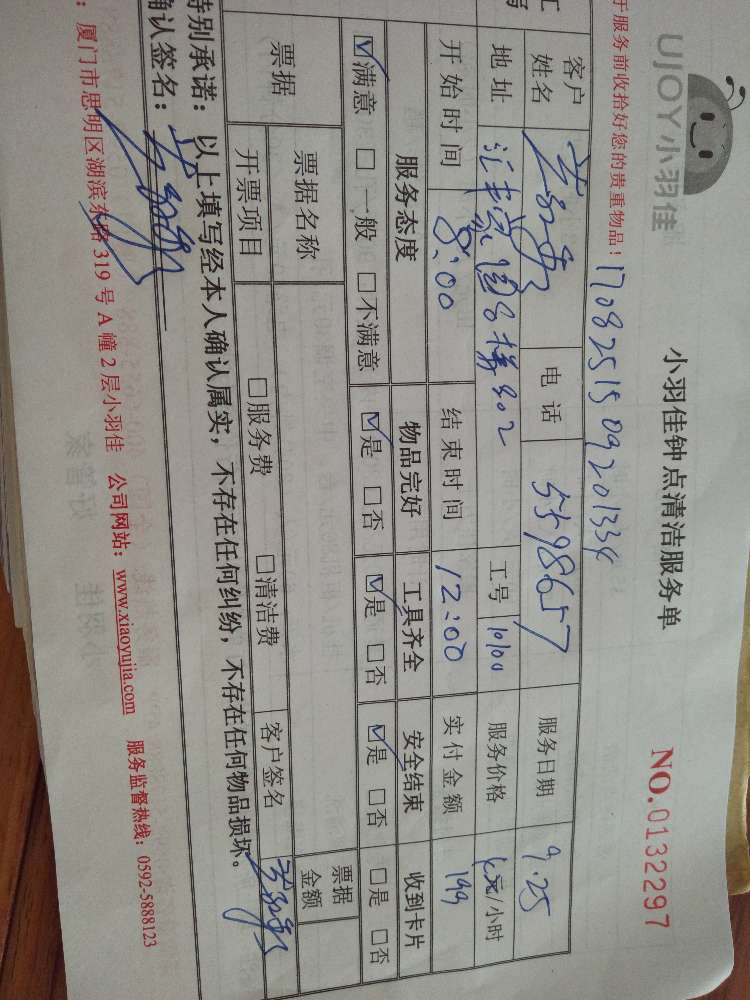 UJOY小羽佳
小羽佳钟点清洁服务单
NO.0132297
于服务前收拾好您的贵重物品！
1708251509201334
客户姓名 电话 5598657 服务日期 9.25
地址 工号 服务价格 元/小时
开始时间 8:00 结束时间 12:00 实付金额 199
服务态度 物品完好 工具齐全 安全结束 收到卡片
☑满意 □一般 □不满意 ☑是 □否 ☑是 □否 ☑是 □否 □是 □否
票据 票据名称 票据金额
开票项目 □服务费 □清洁费 客户签名
特别承诺：以上填写经本人确认属实，不存在任何纠纷，不存在任何物品损坏。
确认签名：
：厦门市思明区湖滨东路319号A幢2层小羽佳 公司网站：www.xiaoyujia.com 服务监督热线：0592-5888123